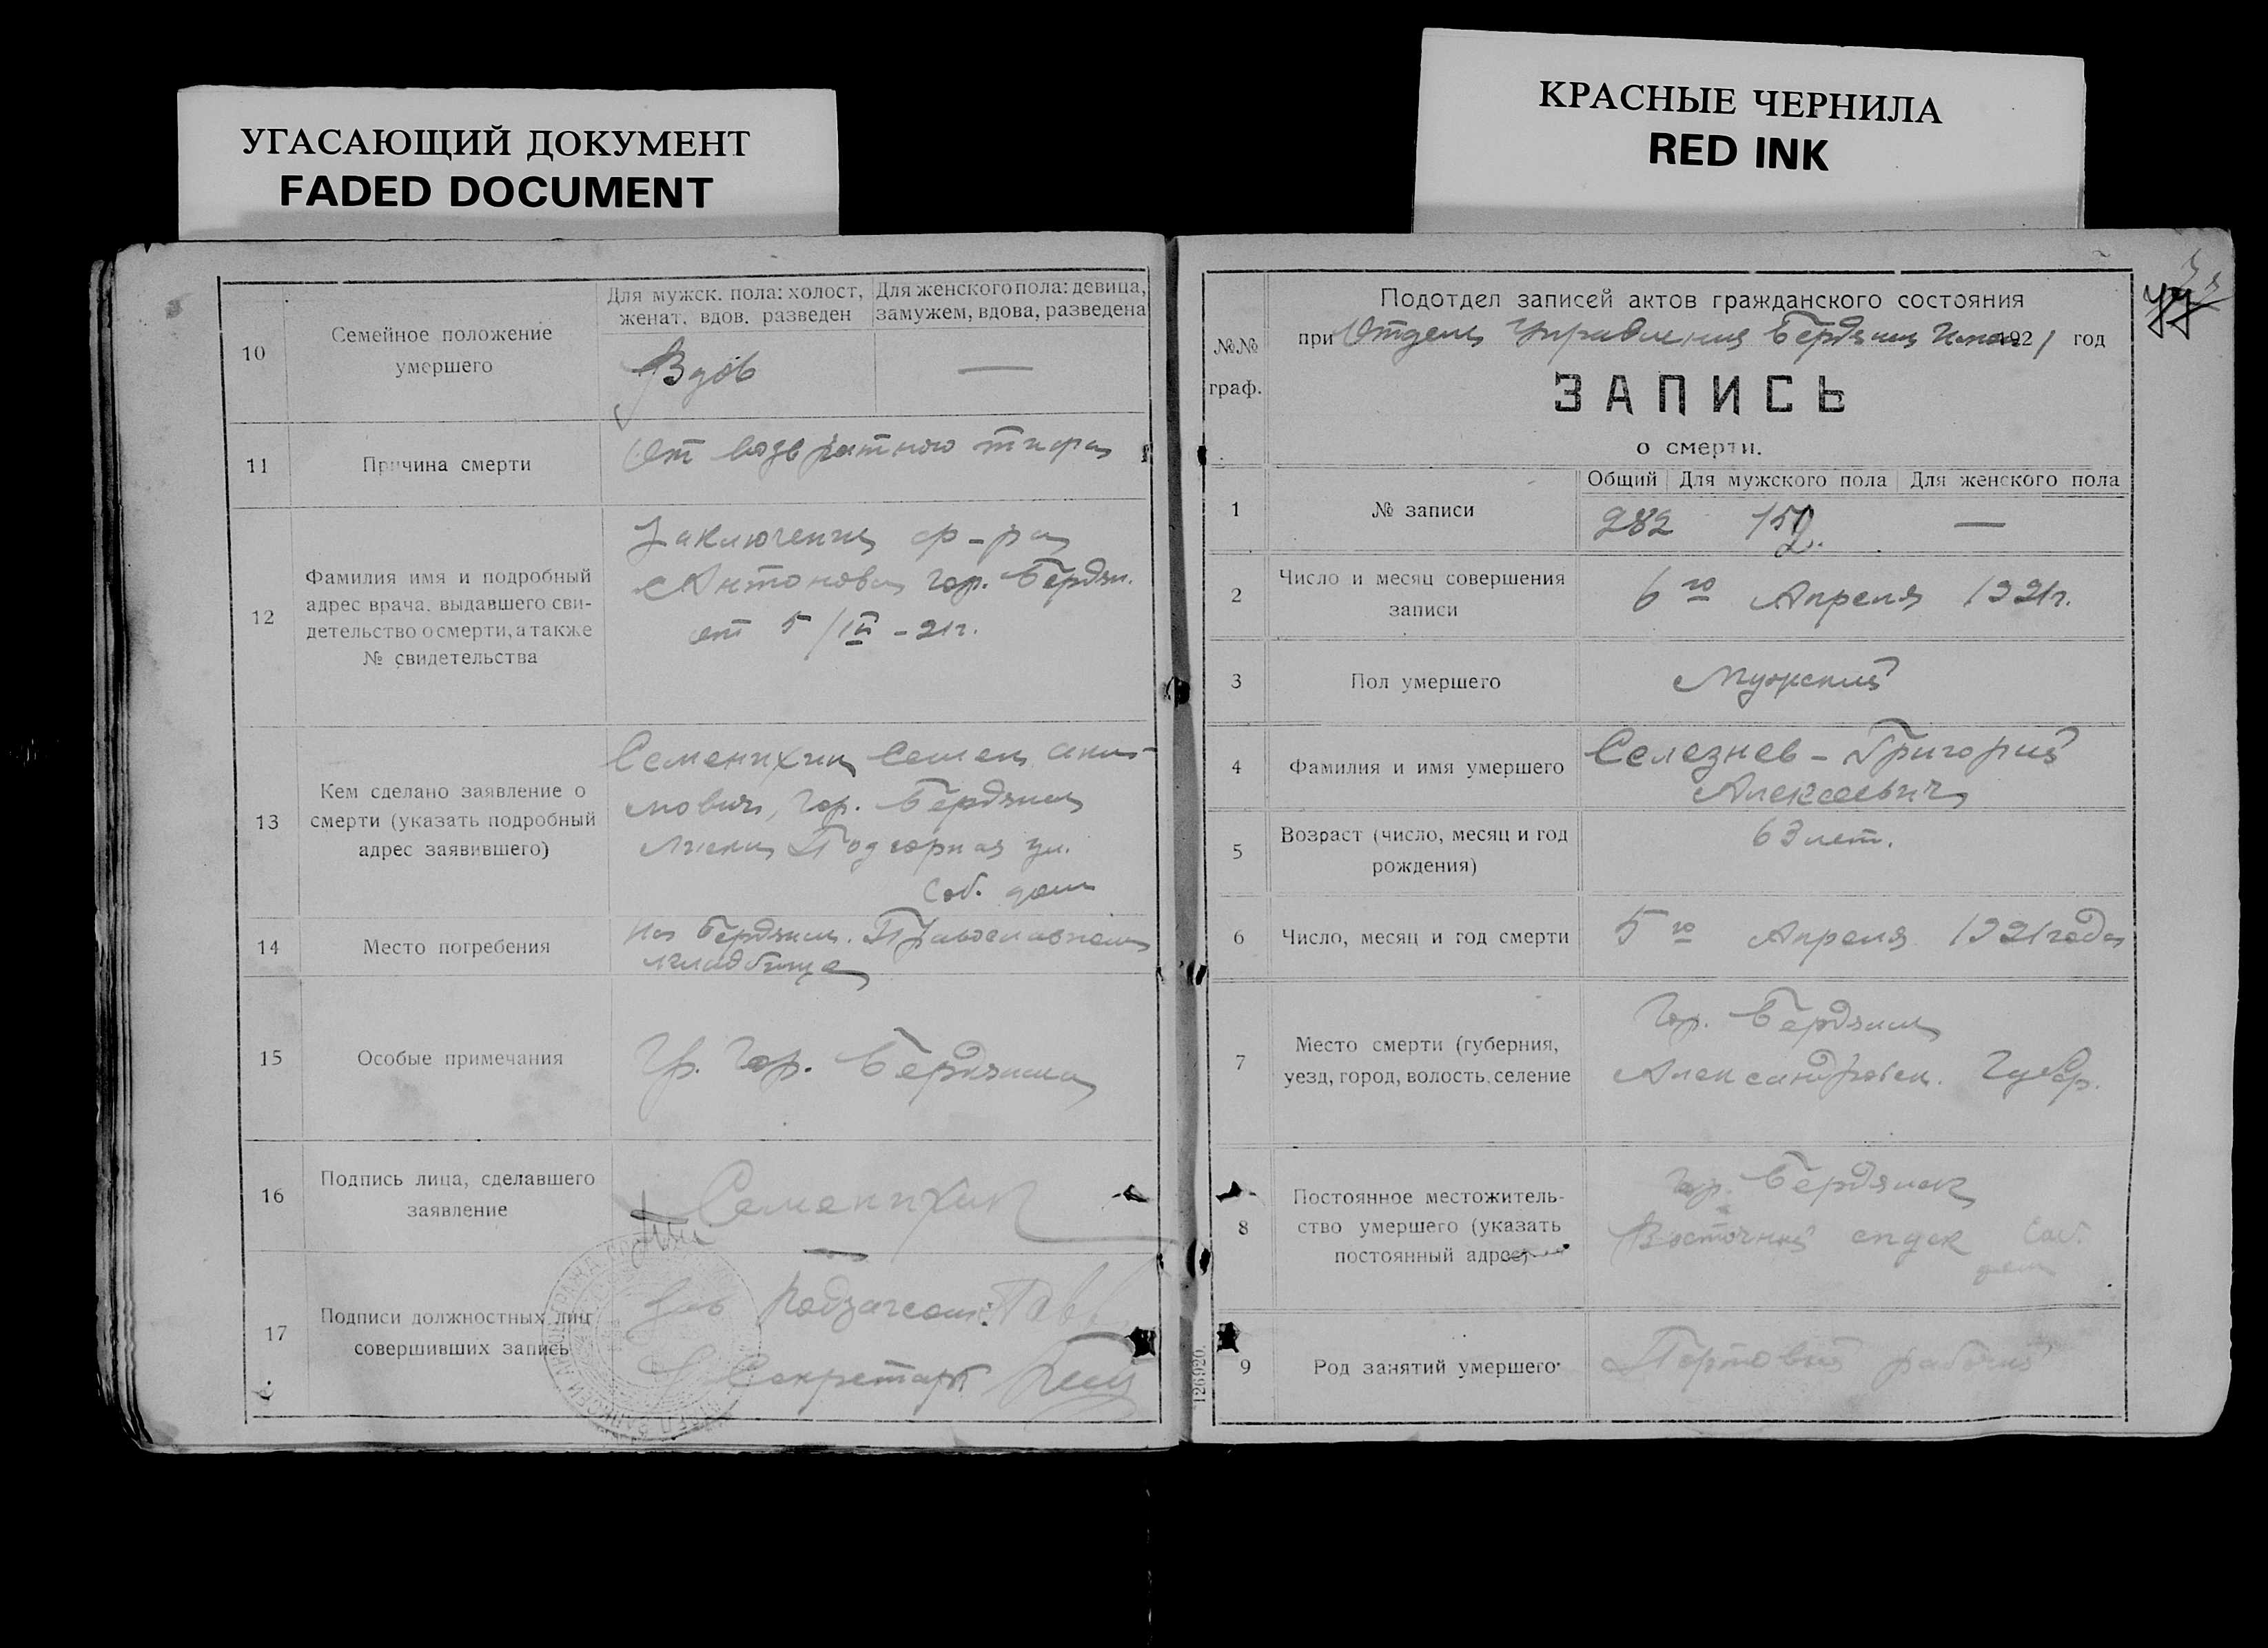 УГАСАЮЩИЙ ДОКУМЕНТ
FADED DOCUMENT
КРАСНЫЕ ЧЕРНИЛА
RED INK
10
Семейное положение
умершего
Для мужск. пола: холост,
женат. вдов. разведен
Для женского пола: девица,
замужем, вдова, разведена
Вдов
—
11
Причина смерти
От возвратного тифа
12
Фамилия имя и подробный
адрес врача. выдавшего сви-
детельство о смерти, а также
№ свидетельства
Заключение ф-ра
Антонова гор. Бердян.
от 5/IV – 21 г.
13
Кем сделано заявление о
смерти (указать подробный
адрес заявившего)
Семенихин Семен
мович, гор. Бердянск
Подгорная ул.
Соб. дом
14
Место погребения
На Бердянск. Православном
кладбище
15
Особые примечания
Гр. Гор. Бердянска
16
Подпись лица, сделавшего
заявление
Семенихин
17
Подписи должностных лиц
совершивших запись
Зав Подзагсом:
Секретарь
№№
граф.
Подотдел записей актов гражданского состояния
при Отделе Управления Бердянск 1921 год
ЗАПИСЬ
о смерти.
1
№ записи
Общий Для мужского пола Для женского пола
282 152 —
2
Число и месяц совершения
записи
6го Апреля 1921 г.
3
Пол умершего
Мужский
4
Фамилия и имя умершего
Селезнев – Григорий
Алексеевич
5
Возраст (число, месяц и год
рождения)
63 лет.
6
Число, месяц и год смерти
5го Апреля 1921 года
7
Место смерти (губерния,
уезд, город, волость, селение
Гор. Бердянск
Александровск. Губер.
8
Постоянное местожитель-
ство умершего (указать
постоянный адрес)
гор. Бердянск
Восточный спуск Соб.
дом
9
Род занятий умершего
Портовый рабочий
126920.